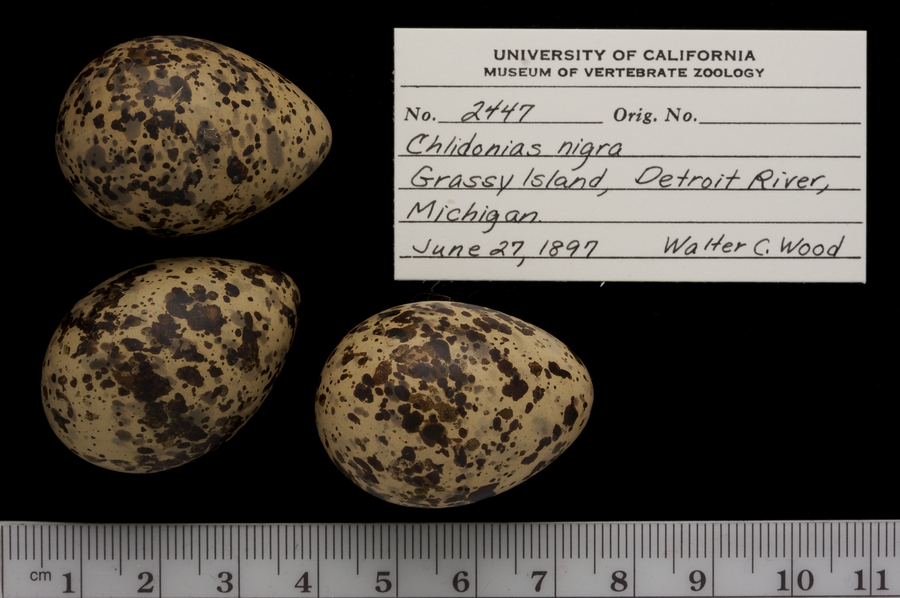 UNIVERSITY OF CALIFORNIA
MUSEUM OF VERTEBRATE ZOOLOGY
No. 2447 Orig. No.
Chlidonias nigra
Grassy Island, Detroit River,
Michigan.
June 27, 1897 Walter C. Wood
cm 1 2 3 4 5 6 7 8 9 10 11